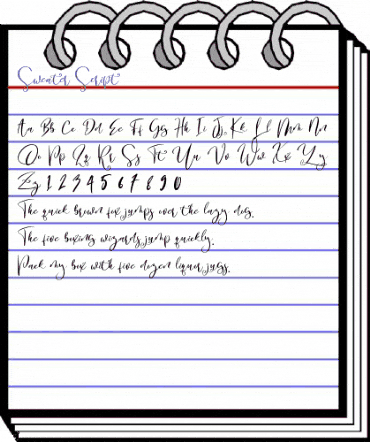 Sweater Script
Aa Bb Cc Dd Ee Ff Gg Hh Ii Jj Kk Ll Mm Nn
Oo Pp Qq Rr Ss Tt Uu Vv Ww Xx Yy
Zz 1 2 3 4 5 6 7 8 9 0
The quick brown fox jumps over the lazy dog.
The five boxing wizards jump quickly.
Pack my box with five dozen liquor jugs.